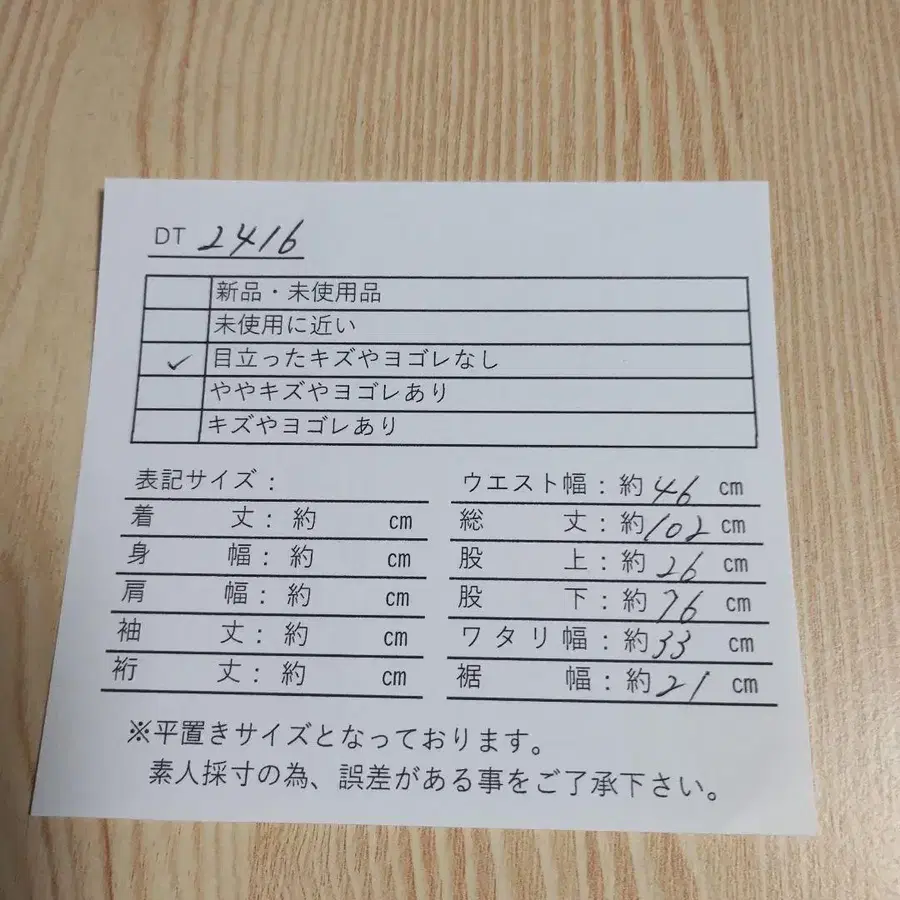 DT 2416
新品・未使用品
未使用に近い
✓ 目立ったキズやヨゴレなし
ややキズやヨゴレあり
キズやヨゴレあり
表記サイズ：
着丈：約 cm
身幅：約 cm
肩幅：約 cm
袖丈：約 cm
裄丈：約 cm
ウエスト幅：約46 cm
総丈：約102 cm
股上：約26 cm
股下：約76 cm
ワタリ幅：約33 cm
裾幅：約21 cm
※平置きサイズとなっております。
素人採寸の為、誤差がある事をご了承下さい。